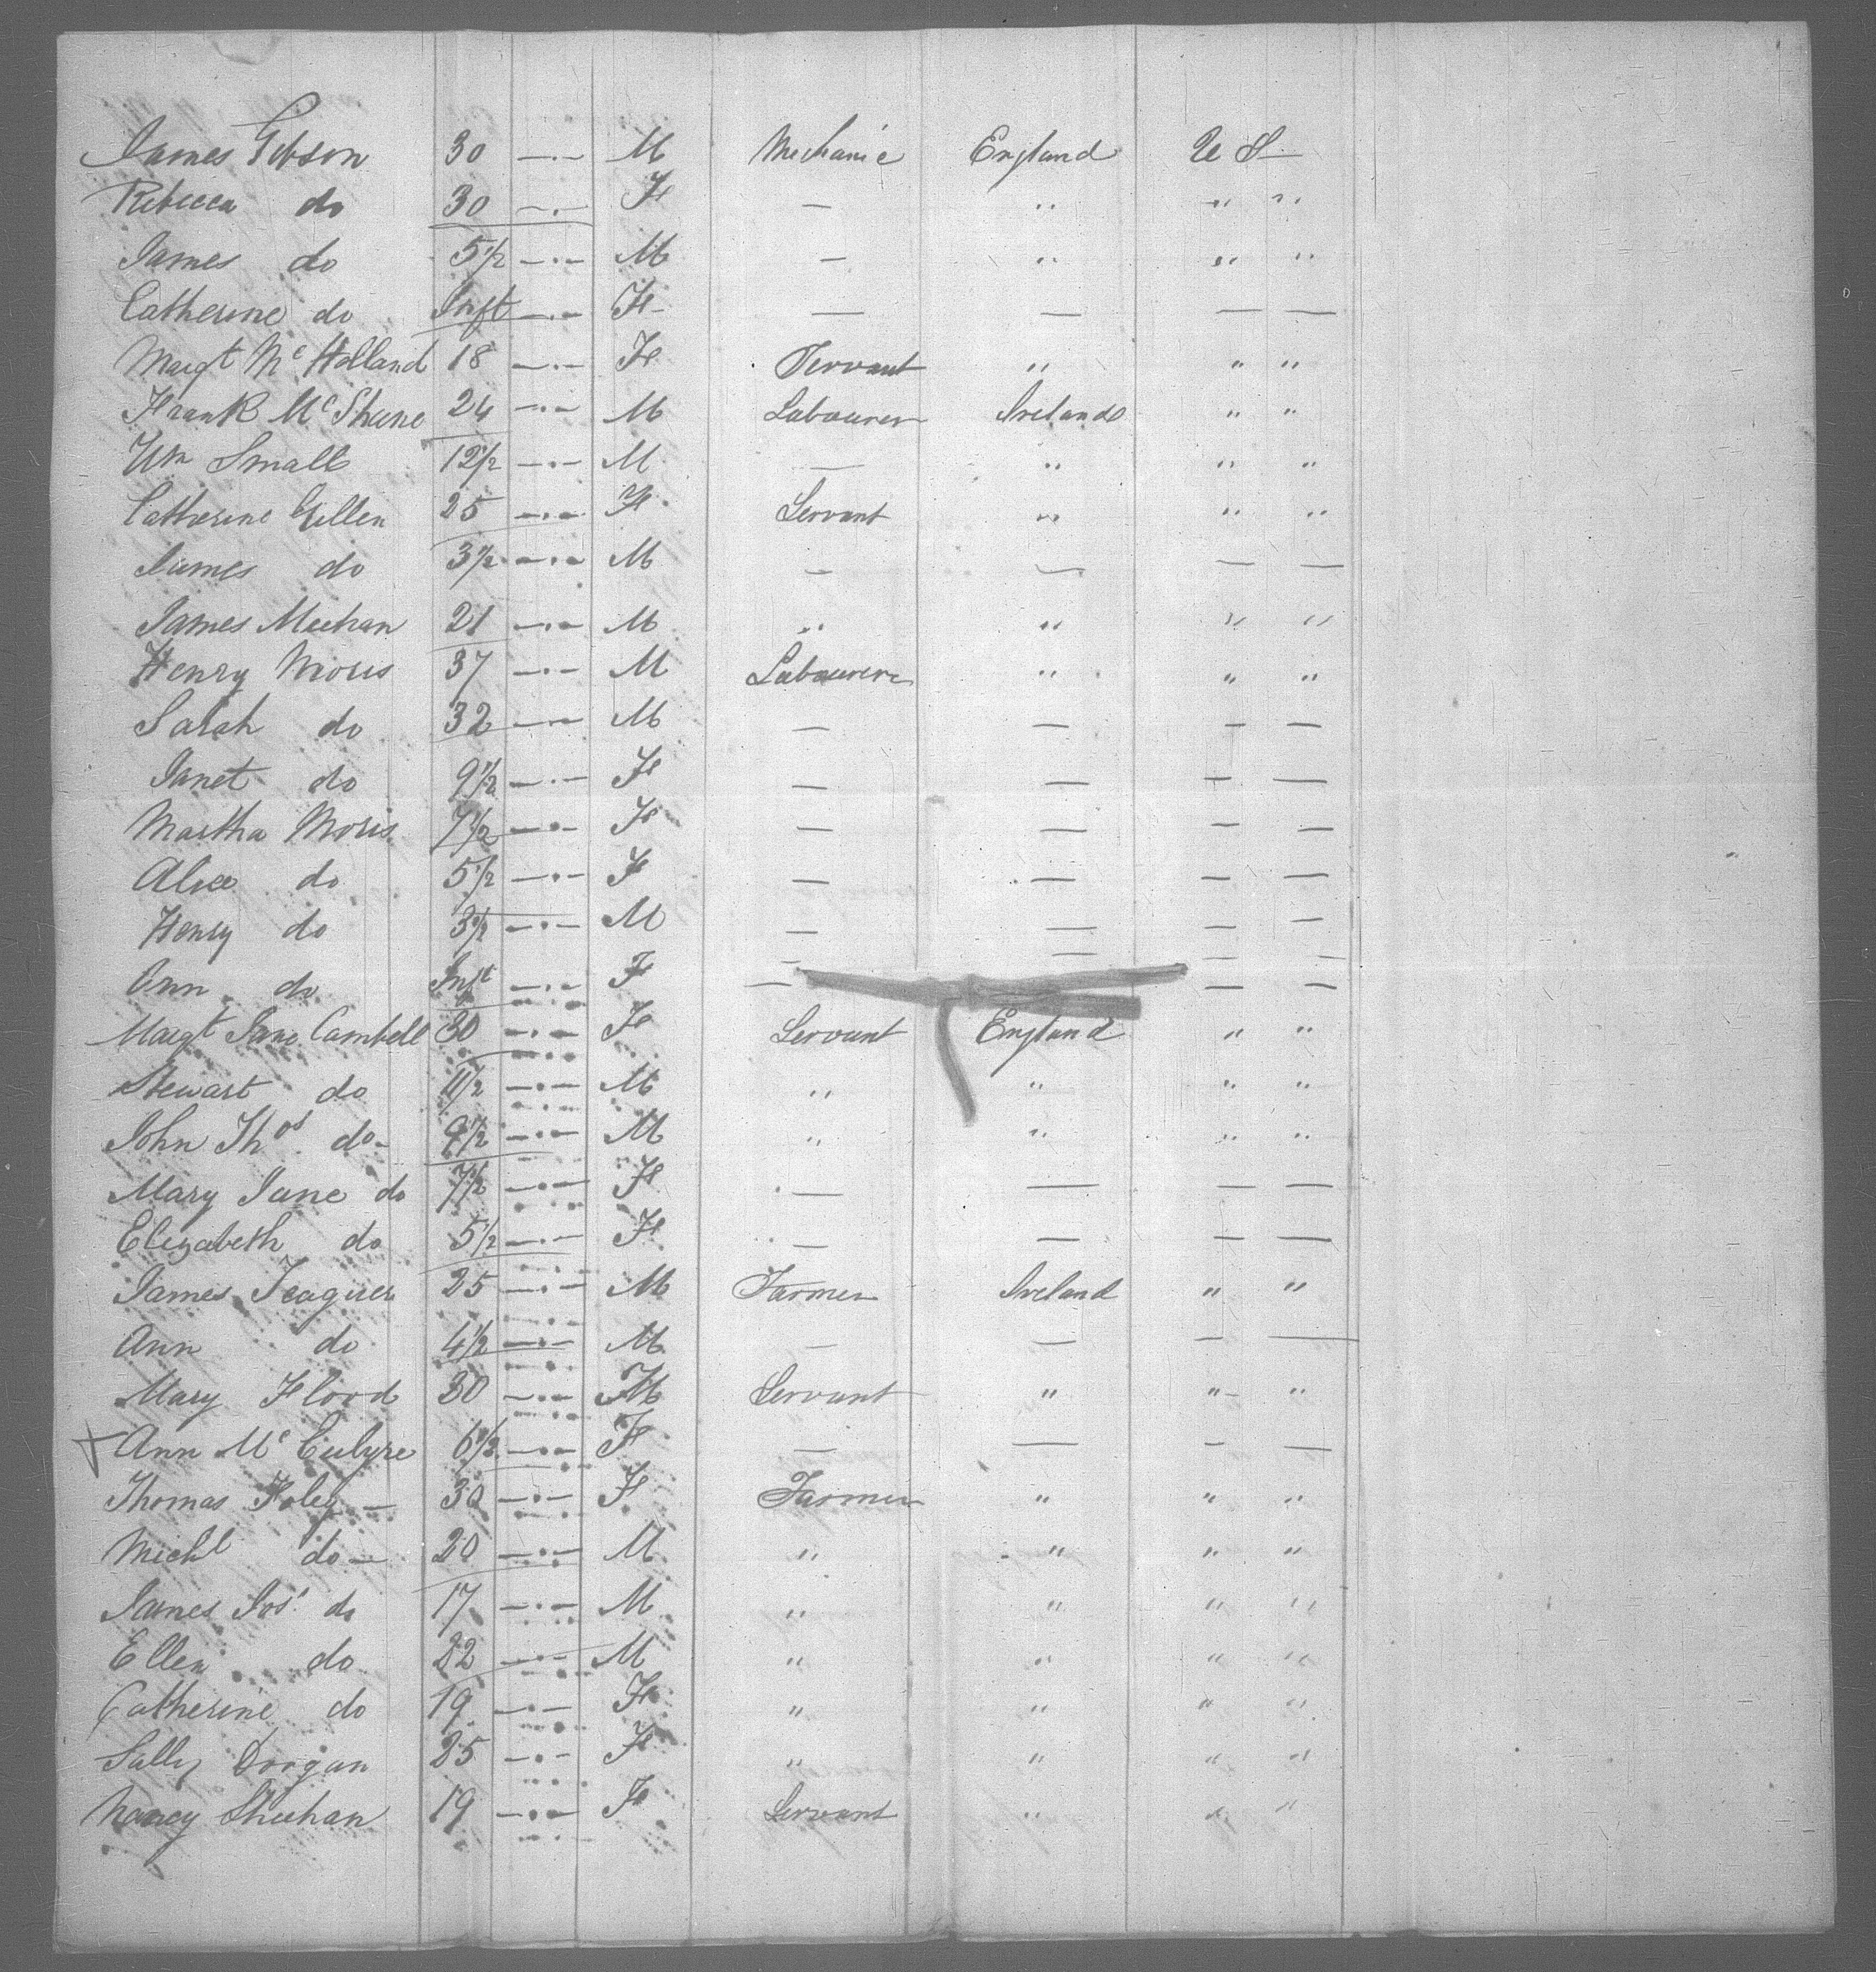 James Gibson 30 —·— M Mechanic England U S —
Rebecca do 30 —·— F — " " "
James do 5 1/2 —·— M — " " "
Catherine do Inft —·— F — — — —
Margt Mc Holland 18 —·— F Servant " " "
Frank McShane 24 —·— M Labourer Ireland " "
Wm Small 12 1/2 —·— M — " " "
Catherine Gillen 25 —·— F Servant " " "
James do 3 1/2 —·— M — — — —
James Meehan 21 —·— M " " " "
Henry Moris 37 —·— M Labourer " " "
Sarah do 32 —·— M — — — —
Janet do 9 1/2 —·— F — — — —
Martha Moris 7 1/2 —·— F — — — —
Alice do 5 1/2 —·— F — — — —
Henry do 3 1/2 —·— M — — — —
Ann do Inft —·— F — — —
Margt Jane Cambell 30 —·— F Servant England " "
Stewart do 11 1/2 —·— M " " " "
John Thos do — 9 1/2 —·— M " " " "
Mary Jane do 7 1/2 —·— F — — — —
Elizabeth do 5 1/2 —·— F — — — —
James Teaguer 25 —·— M Farmer Ireland " "
Ann do 4 1/2 —·— M — — — —
Mary Flood 30 —·— Servant " " "
Ann Mc 6 1/2 —·— F — — — —
Thomas Foley — 30 —·— F Farmer " " "
Michl do — 20 —·— M " " " "
James Jos do 17 —·— M " " " "
Ellen do 22 —·— M " " " "
Catherine do 19 —·— F " " " "
Sally Dorgan 25 —·— F " " " "
Nancy Sheehan 19 —·— F Servant " " "